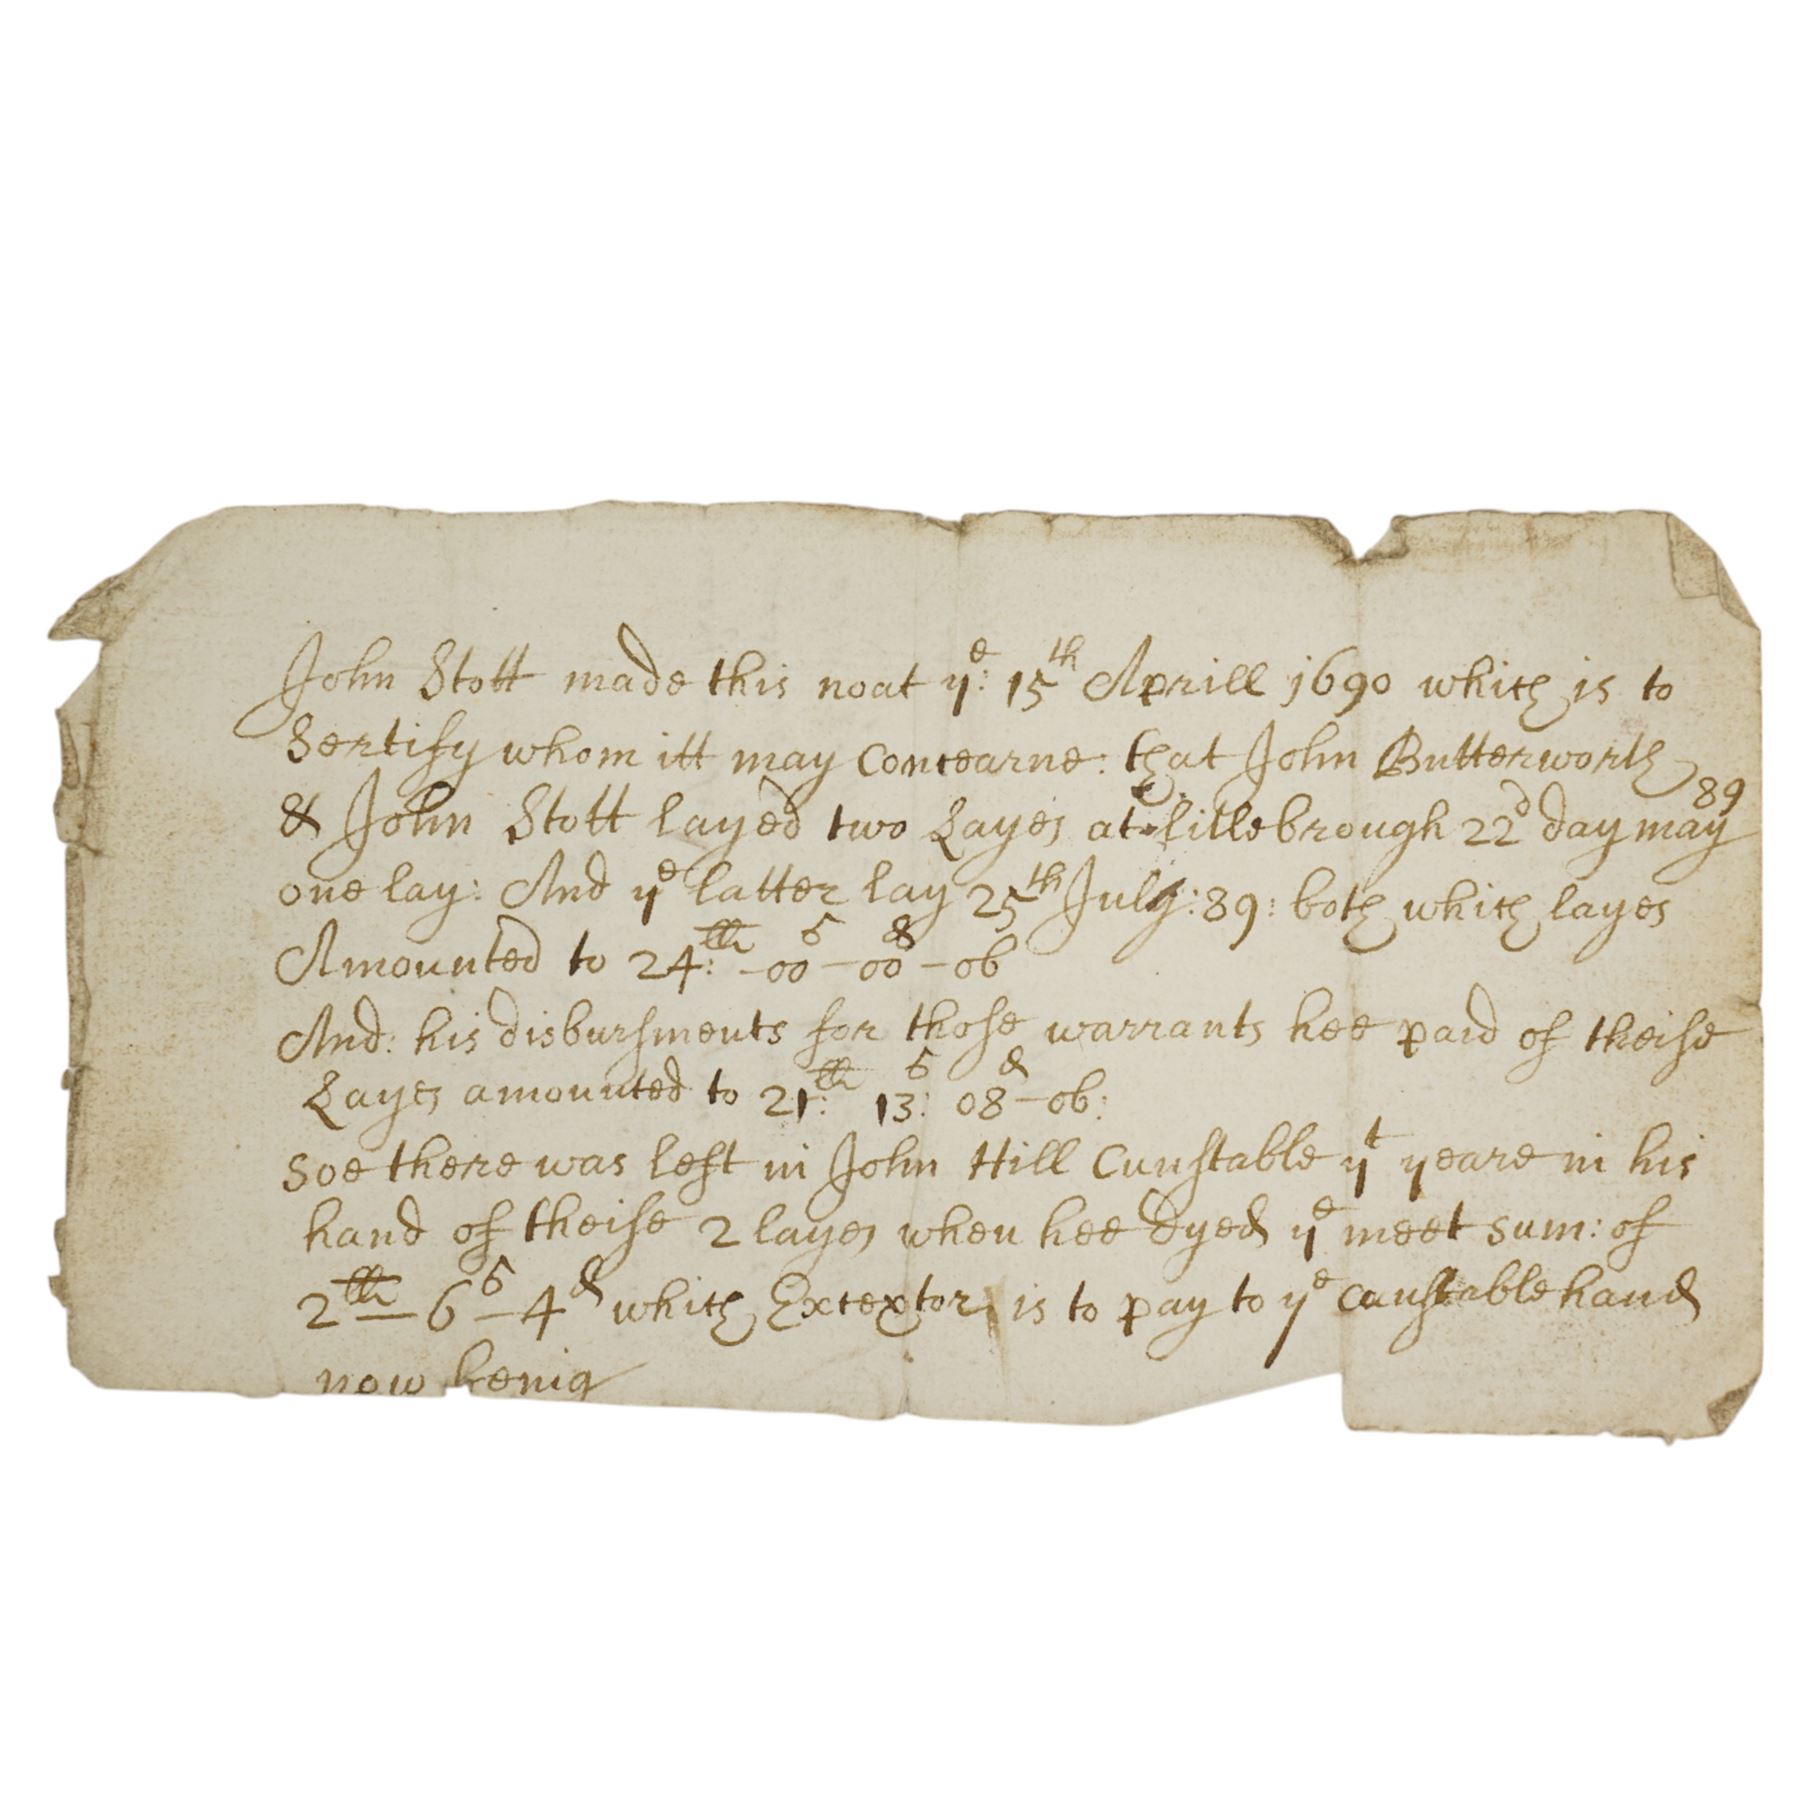 John Stott made this noat ye: 15th Aprill 1690 which is to
Sertify whom itt may Concearne: that John Butterworth
& John Stott layed two Layes at litlebrough 22d day may 89
one lay: And ye latter lay 25th July: 89: both which layes
Amounted to 24:ll -00s -00d -ob
And: his disbursments for those warrants hee paid of theise
Layes amounted to 21:ll 13s: 08d -ob:
soe there was left in John Hill Cunstable yt yeare in his
hand of theise 2 layes when hee dyed ye meet sum: of
2ll - 6s - 4d which Excextor is to pay to ye Cunstable hand
now